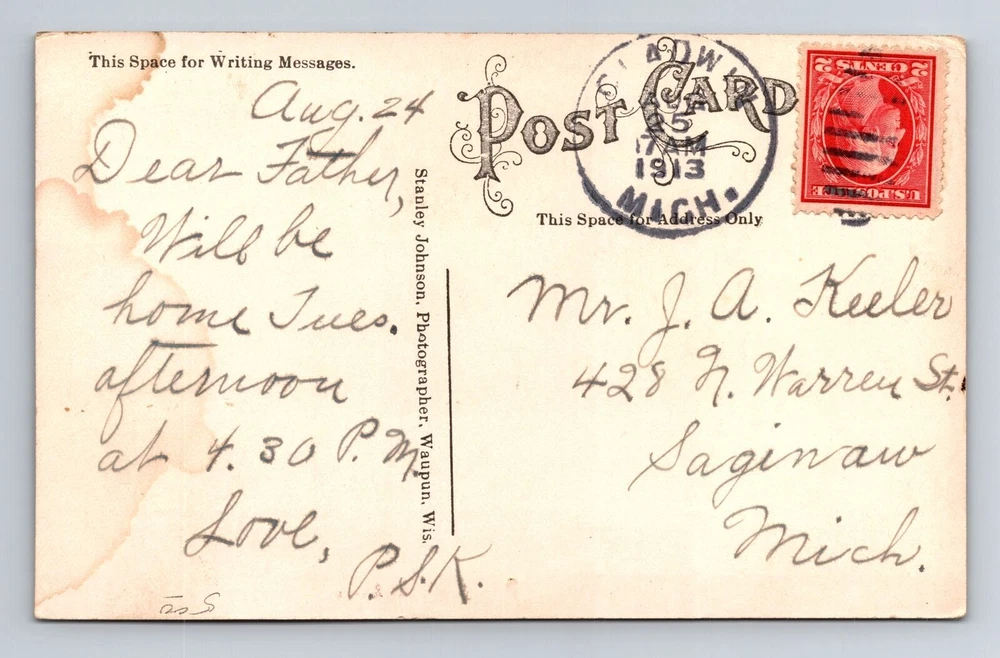 This Space for Writing Messages.
Aug. 24
Dear Father,
Will be
home Tues.
afternoon
at 4.30 P.M.
Love,
P.S.K.
Stanley Johnson, Photographer, Waupun, Wis.
POST CARD
GLADWIN
5
7 AM
1913
MICH.
This Space for Address Only
U.S. POSTAGE
2 CENTS 2
Mr. J. A. Keeler
428 N. Warren St.
Saginaw
Mich.